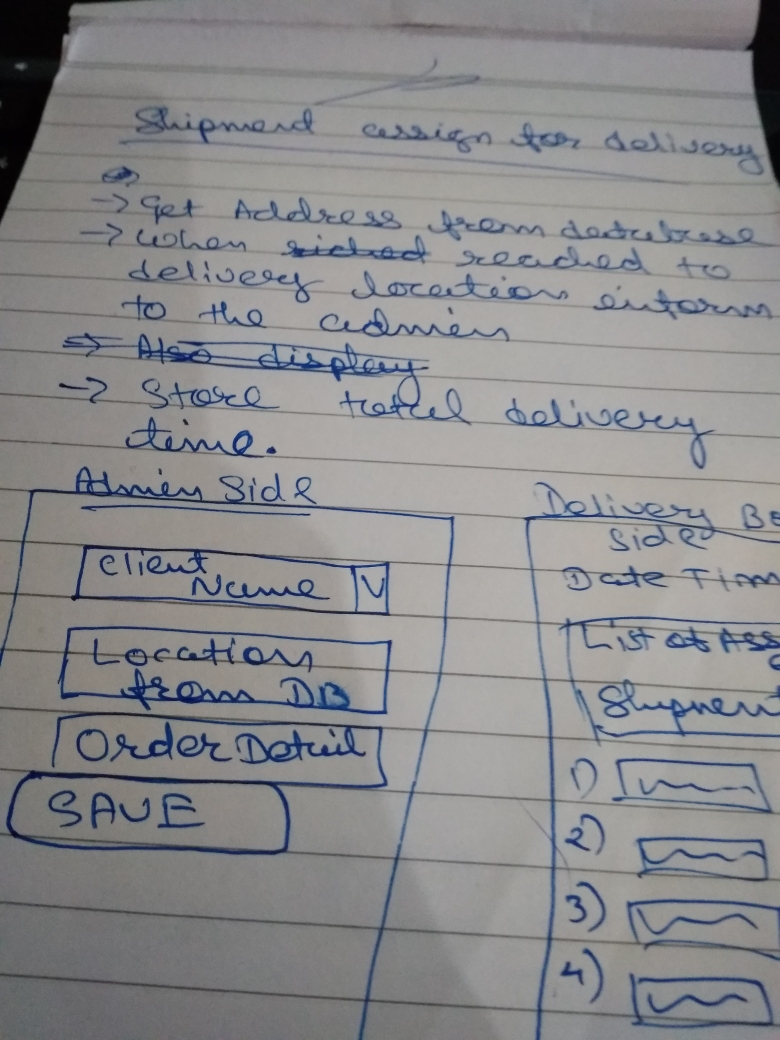 Shipment assign for delivery
→ Get Address from database
→ When reached to
delivery location inform
to the admin
⇒ Also display
→ Store total delivery
time.
Admin Side
Client
Name V
Location
from DB
Order Detail
SAVE
Delivery Bo
side
Date Tim
List of Ass
Shipment
1)
2)
3)
4)